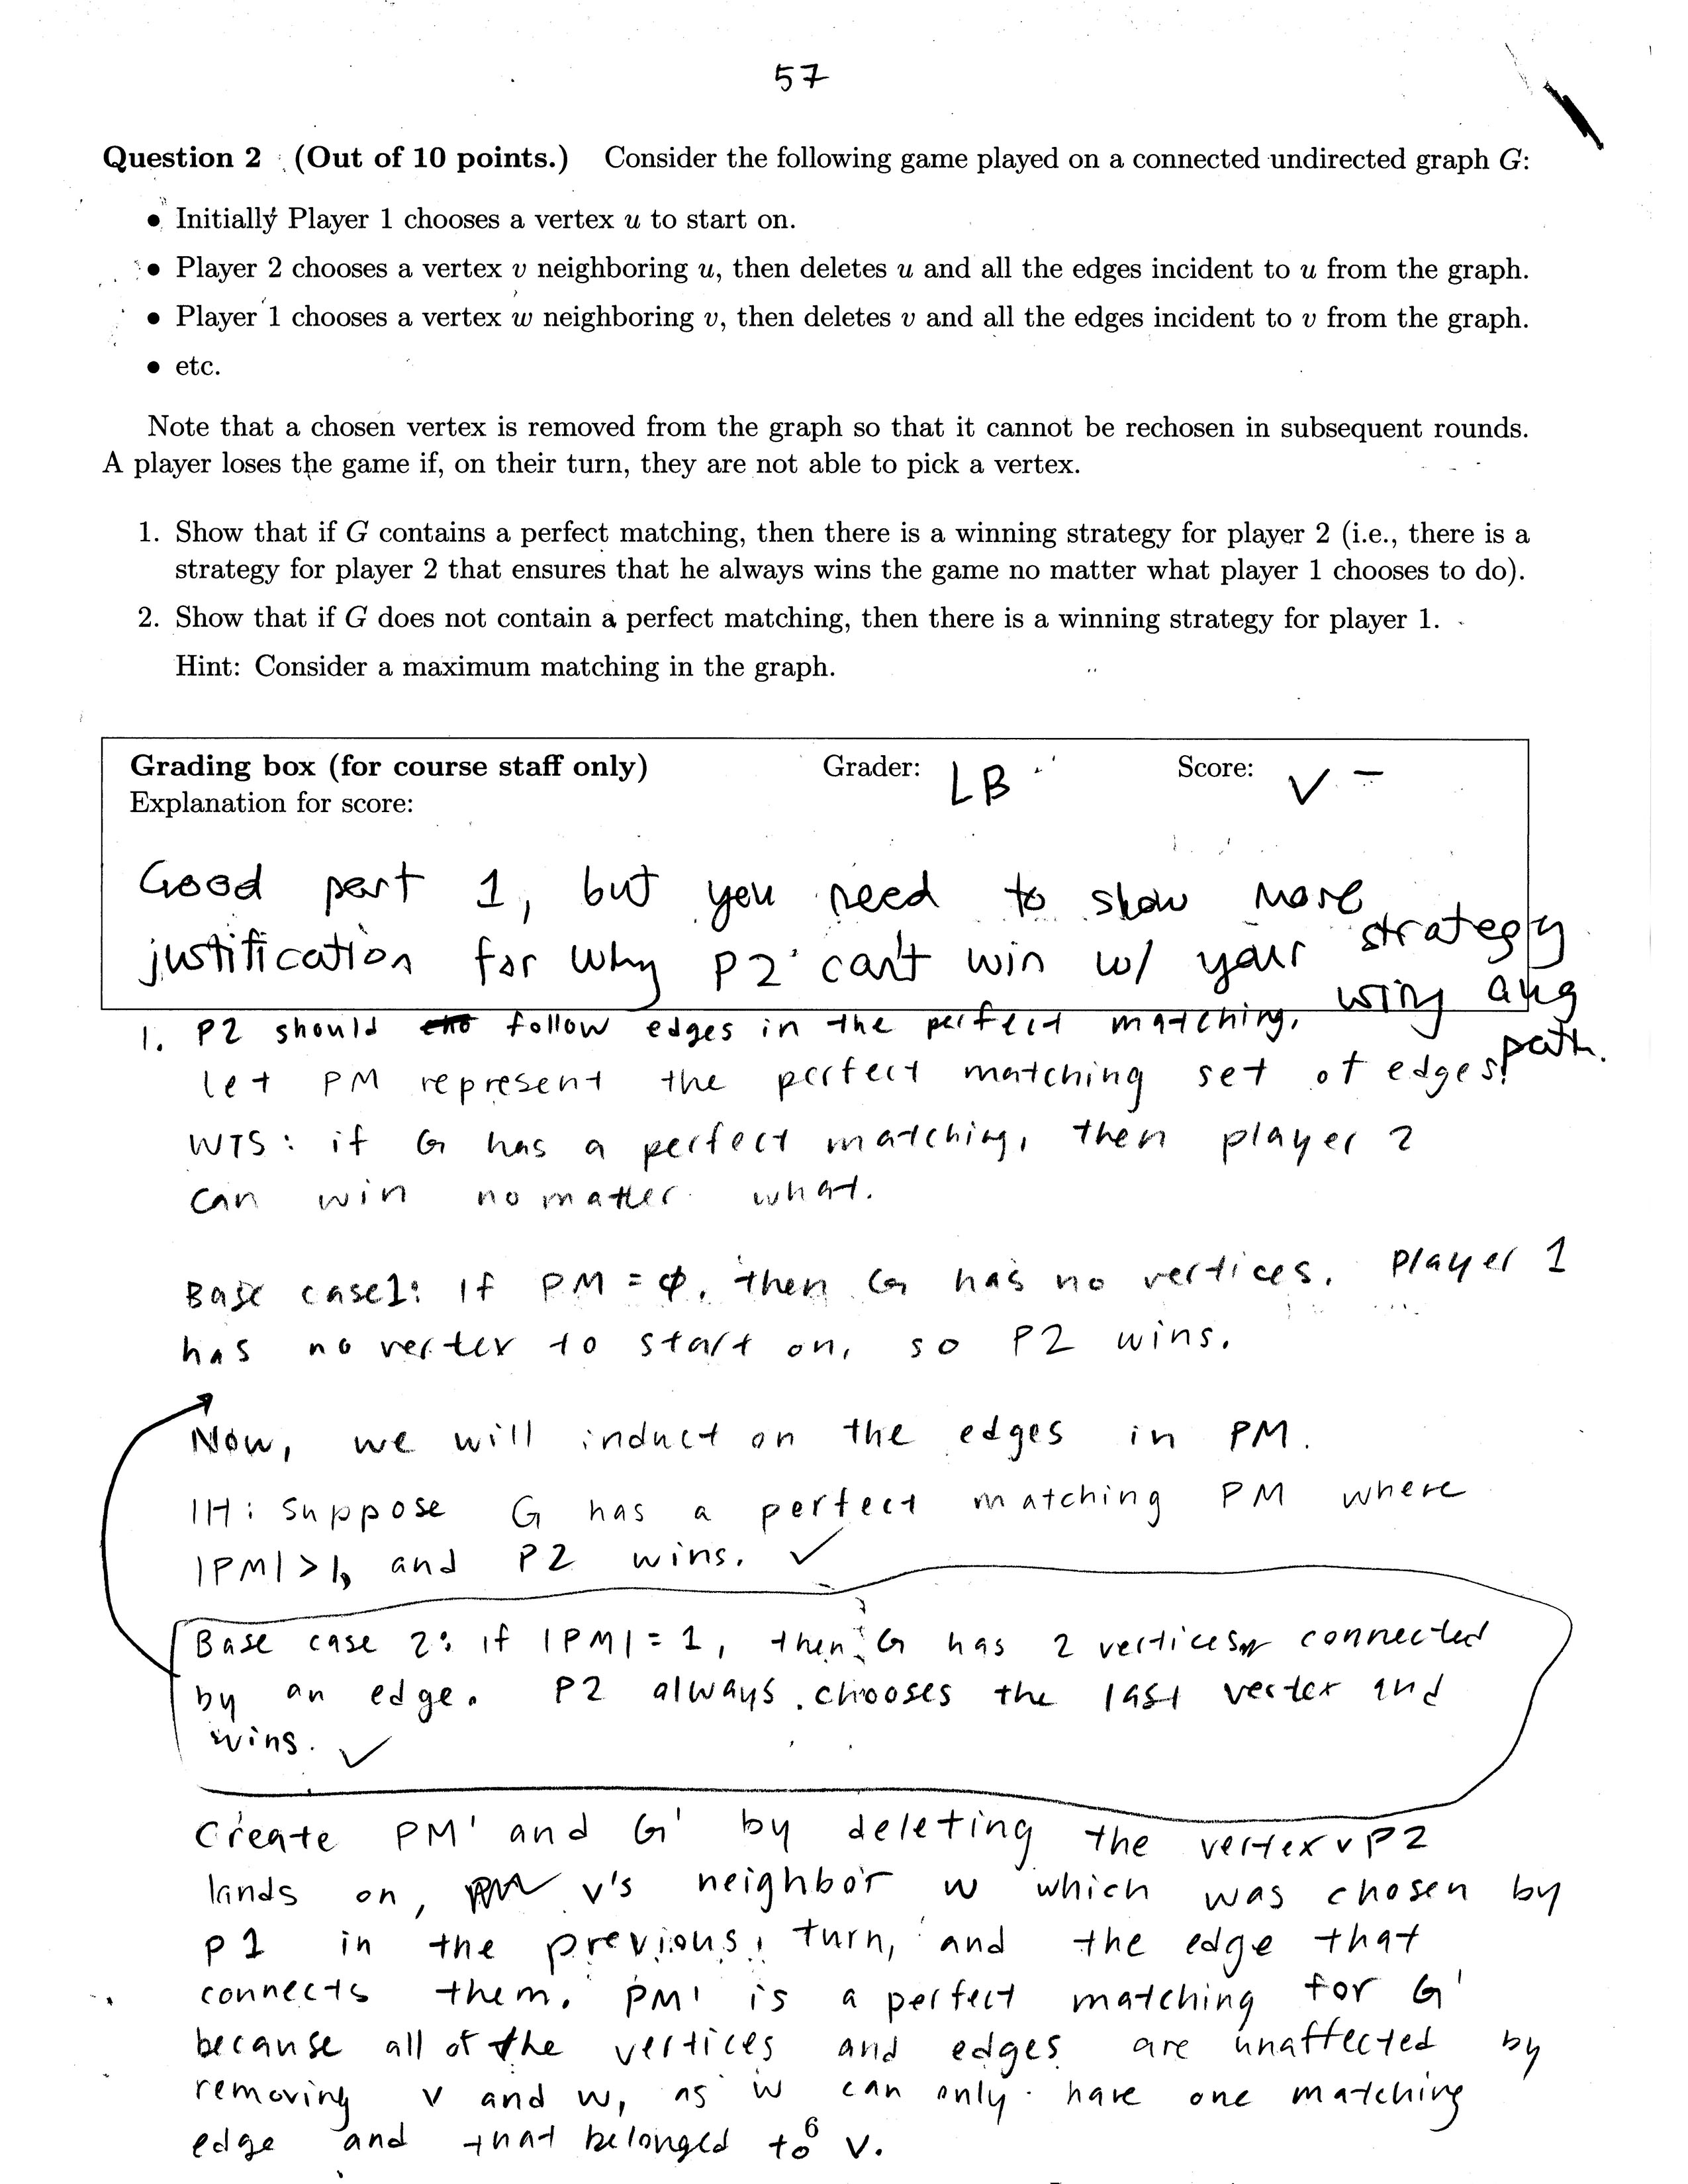 57
Question 2 (Out of 10 points.) Consider the following game played on a connected undirected graph G:
• Initially Player 1 chooses a vertex u to start on.
• Player 2 chooses a vertex v neighboring u, then deletes u and all the edges incident to u from the graph.
• Player 1 chooses a vertex w neighboring v, then deletes v and all the edges incident to v from the graph.
• etc.
Note that a chosen vertex is removed from the graph so that it cannot be rechosen in subsequent rounds.
A player loses the game if, on their turn, they are not able to pick a vertex.
1. Show that if G contains a perfect matching, then there is a winning strategy for player 2 (i.e., there is a
strategy for player 2 that ensures that he always wins the game no matter what player 1 chooses to do).
2. Show that if G does not contain a perfect matching, then there is a winning strategy for player 1.
Hint: Consider a maximum matching in the graph.
Grading box (for course staff only) Grader: LB Score: √ −
Explanation for score:
Good part 1, but you need to show more
justification for why P2 can't win w/ your strategy
using aug
path.
1. P2 should follow edges in the perfect matching.
let PM represent the perfect matching set of edges.
WTS: if G has a perfect matching, then player 2
can win no matter what.
Base case1: If PM = ∅, then G has no vertices. Player 1
has no vertex to start on, so P2 wins.
Now, we will induct on the edges in PM.
IH: suppose G has a perfect matching PM where
|PM| > 1, and P2 wins. ✓
Base case 2: if |PM| = 1, then G has 2 vertices connected
by an edge. P2 always chooses the last vertex and
wins. ✓
Create PM' and G' by deleting the vertex v P2
lands on, v's neighbor w which was chosen by
P1 in the previous turn, and the edge that
connects them. PM' is a perfect matching for G'
because all of the vertices and edges are unaffected by
removing v and w, as w can only have one matching
edge and that belonged to v.
6